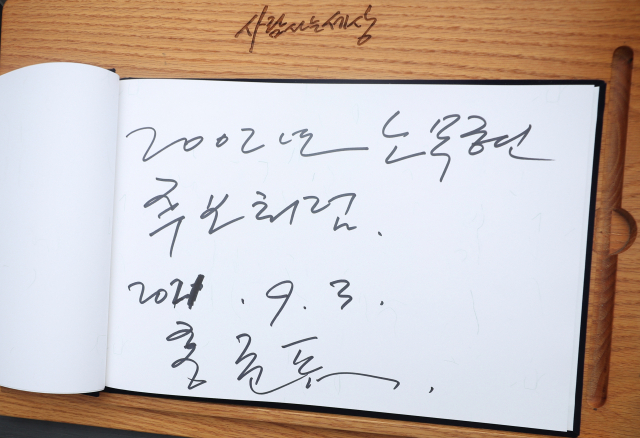 사람사는세상
2002년 노무현
후보처럼.
2021. 9. 3.
홍준표.